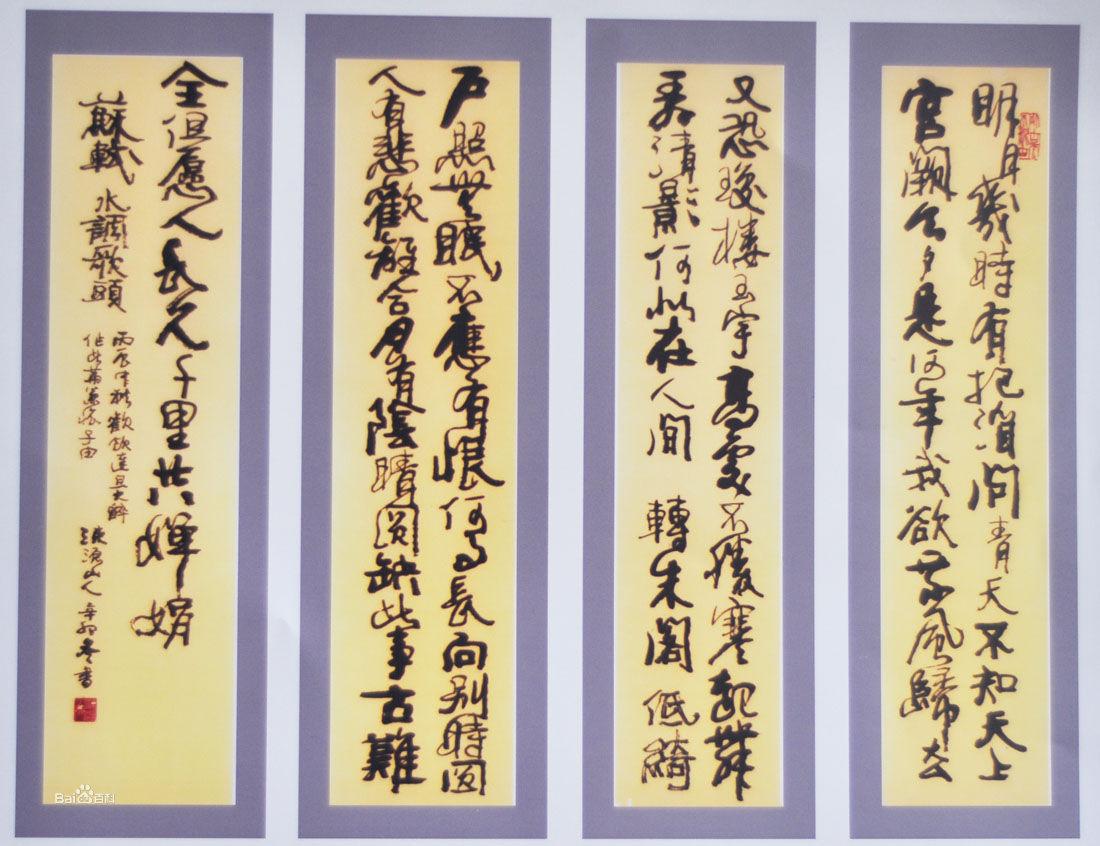 明月幾時有把酒問青天不知天上
宮闕今夕是何年我欲乘風歸去
又恐瓊樓玉宇高處不勝寒起舞
弄清影何似在人間 轉朱閣低綺
戶照無眠不應有恨何事長向別時圓
人有悲歡離合月有陰晴圓缺此事古難
全但愿人長久千里共嬋娟
蘇軾 水調歌頭
丙辰中秋歡飲達旦大醉
作此篇兼懷子由
山人 辛卯冬書
Bai百科